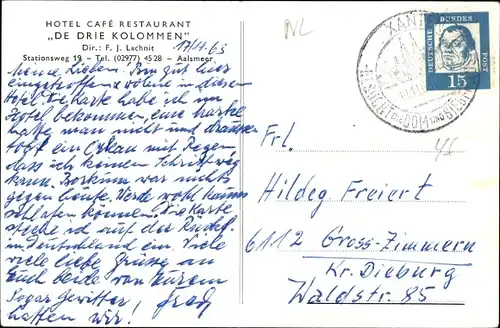 HOTEL CAFÉ RESTAURANT
„DE DRIE KOLOMMEN"
Dir.: F. J. Lachnit
Stationsweg 19 - Tel. (02977) 4528 - Aalsmeer
17/11.63
NL
Meine Lieben. Bin gut hier
eingetroffen & wohne in diesem
Hotel. Die Karte habe ich vom
Hotel bekommen, eine Karte
hatte man nicht und draußen
tobt ein Orkan mit Regen,
dass ich keinen Schritt weg
kann. Borkum war nichts
gegen heute. Werde wohl kaum
schlafen können. Die Karte
stecke ich auf der Rückf.
in Deutschland ein. Viele
viele liebe Grüsse an
Euch beide von Eurem
Sogar Gewitter
hatten wir!
XANTEN
DOM
DEUTSCHE BUNDESPOST
15
Frl.
Hildeg Freiert
6112 Gross-Zimmern
Kr. Dieburg
Waldstr. 85